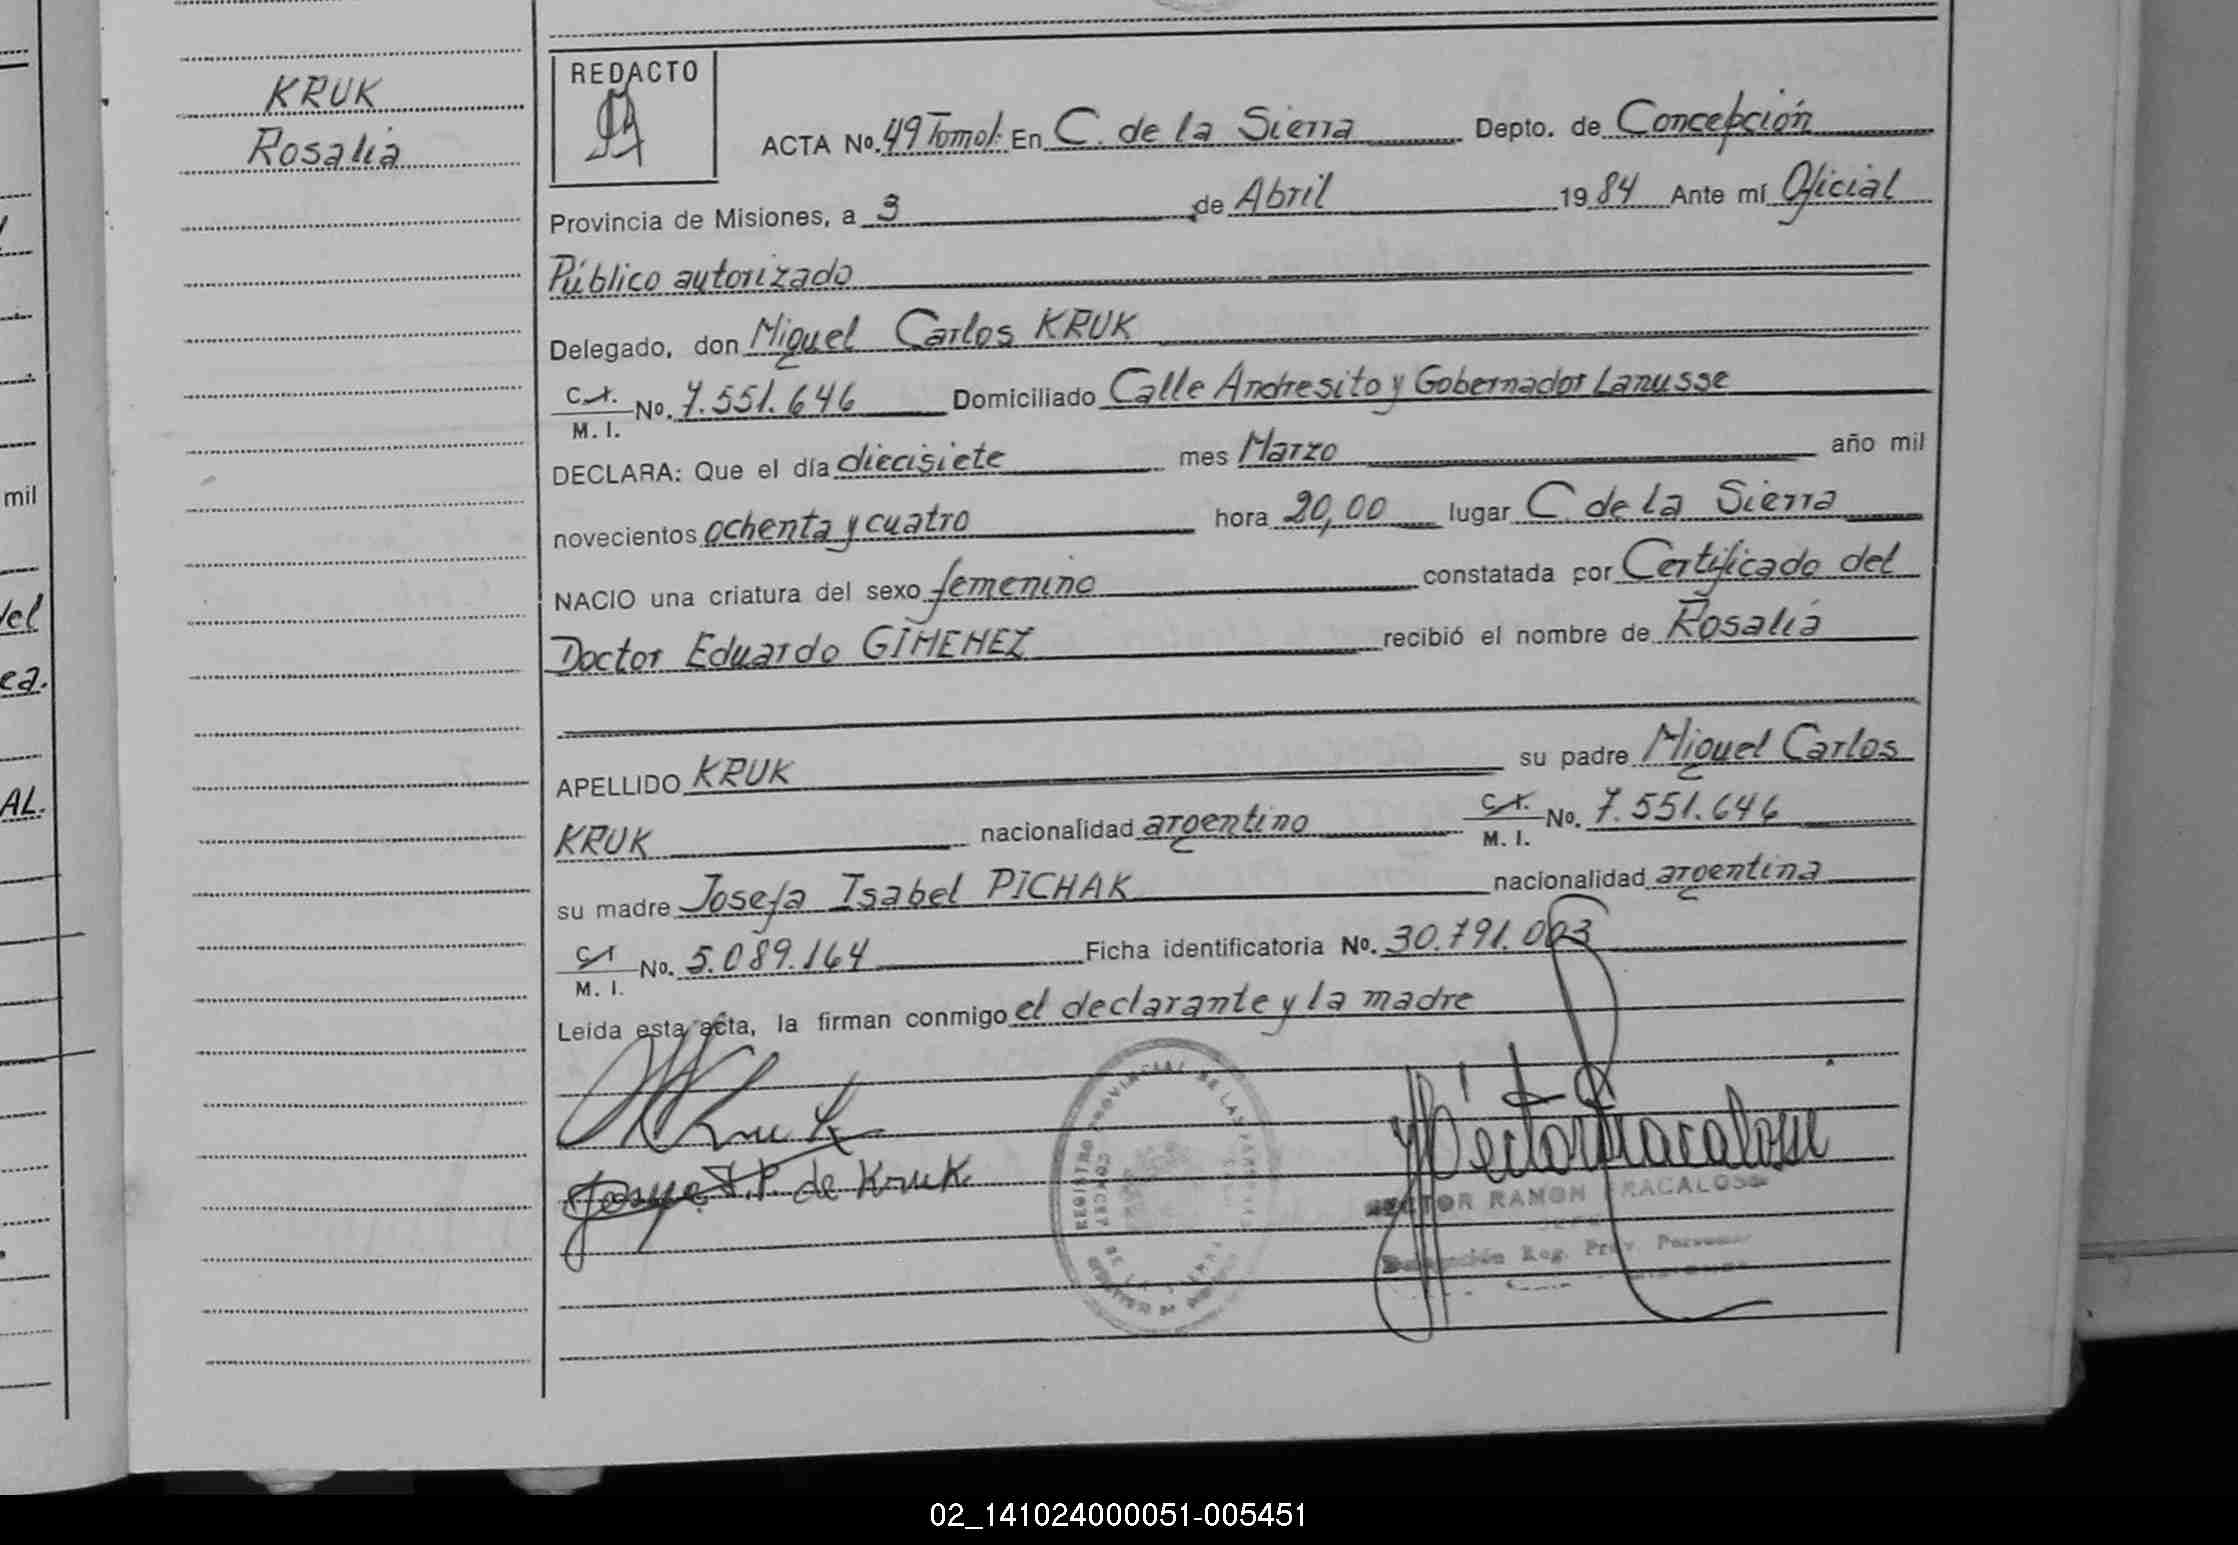 KRUK
Rosalía
REDACTO
ACTA No. 49 Tomo I: En C. de la Sierra Depto. de Concepción
Provincia de Misiones, a 3 de Abril 1984 Ante mí Oficial
Público autorizado
Delegado, don Miguel Carlos KRUK
C.I. M.I. No. 7.551.646 Domiciliado Calle Andresito y Gobernador Lanusse
DECLARA: Que el día diecisiete mes Marzo año mil
novecientos ochenta y cuatro hora 20,00 lugar C. de la Sierra
NACIO una criatura del sexo femenino constatada por Certificado del
Doctor Eduardo GIMENEZ recibió el nombre de Rosalía
APELLIDO KRUK su padre Miguel Carlos
KRUK nacionalidad argentino C.I. M.I. No. 7.551.646
su madre Josefa Isabel PICHAK nacionalidad argentina
C.I M.I. No. 5.089.164 Ficha identificatoria No. 30.791.003
Leída esta acta, la firman conmigo el declarante y la madre
Kruk
I.P. de Kruk
Héctor Fracalossi
HECTOR RAMON FRACALOSSI
mil
del
ea.
AL.
02_141024000051-005451